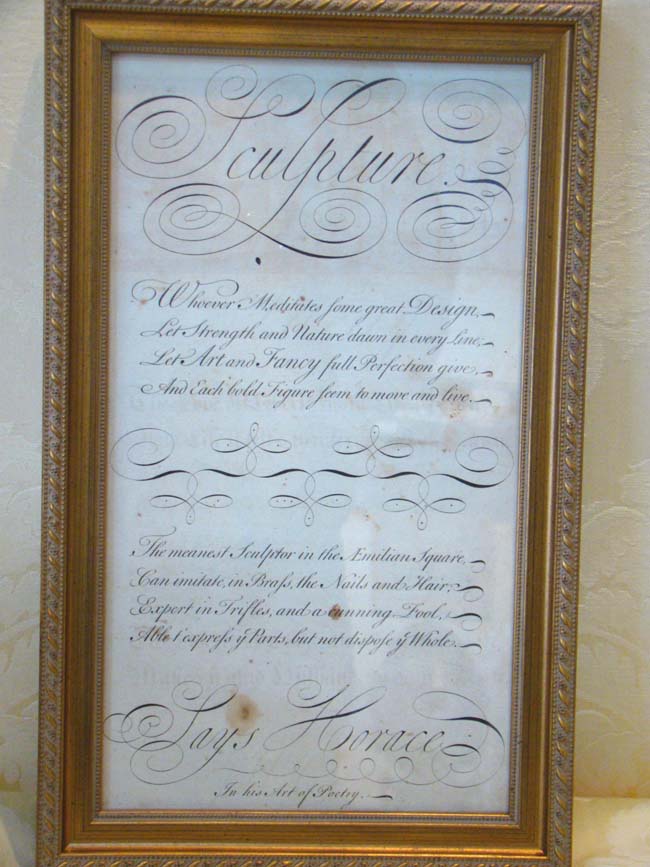 Sculpture.
Whoever Meditates ſome great Deſign,
Let Strength and Nature dawn in every Line;
Let Art and Fancy full Perfection give,
And Each bold Figure ſeem to move and live.
The meanest Sculptor in the Æmilian Square,
Can imitate, in Braſs, the Nails and Hair;
Expert in Trifles, and a cunning Fool,
Able t'expreſs yͤ Parts, but not diſpoſe yͤ Whole.
Says Horace
In his Art of Poetry.